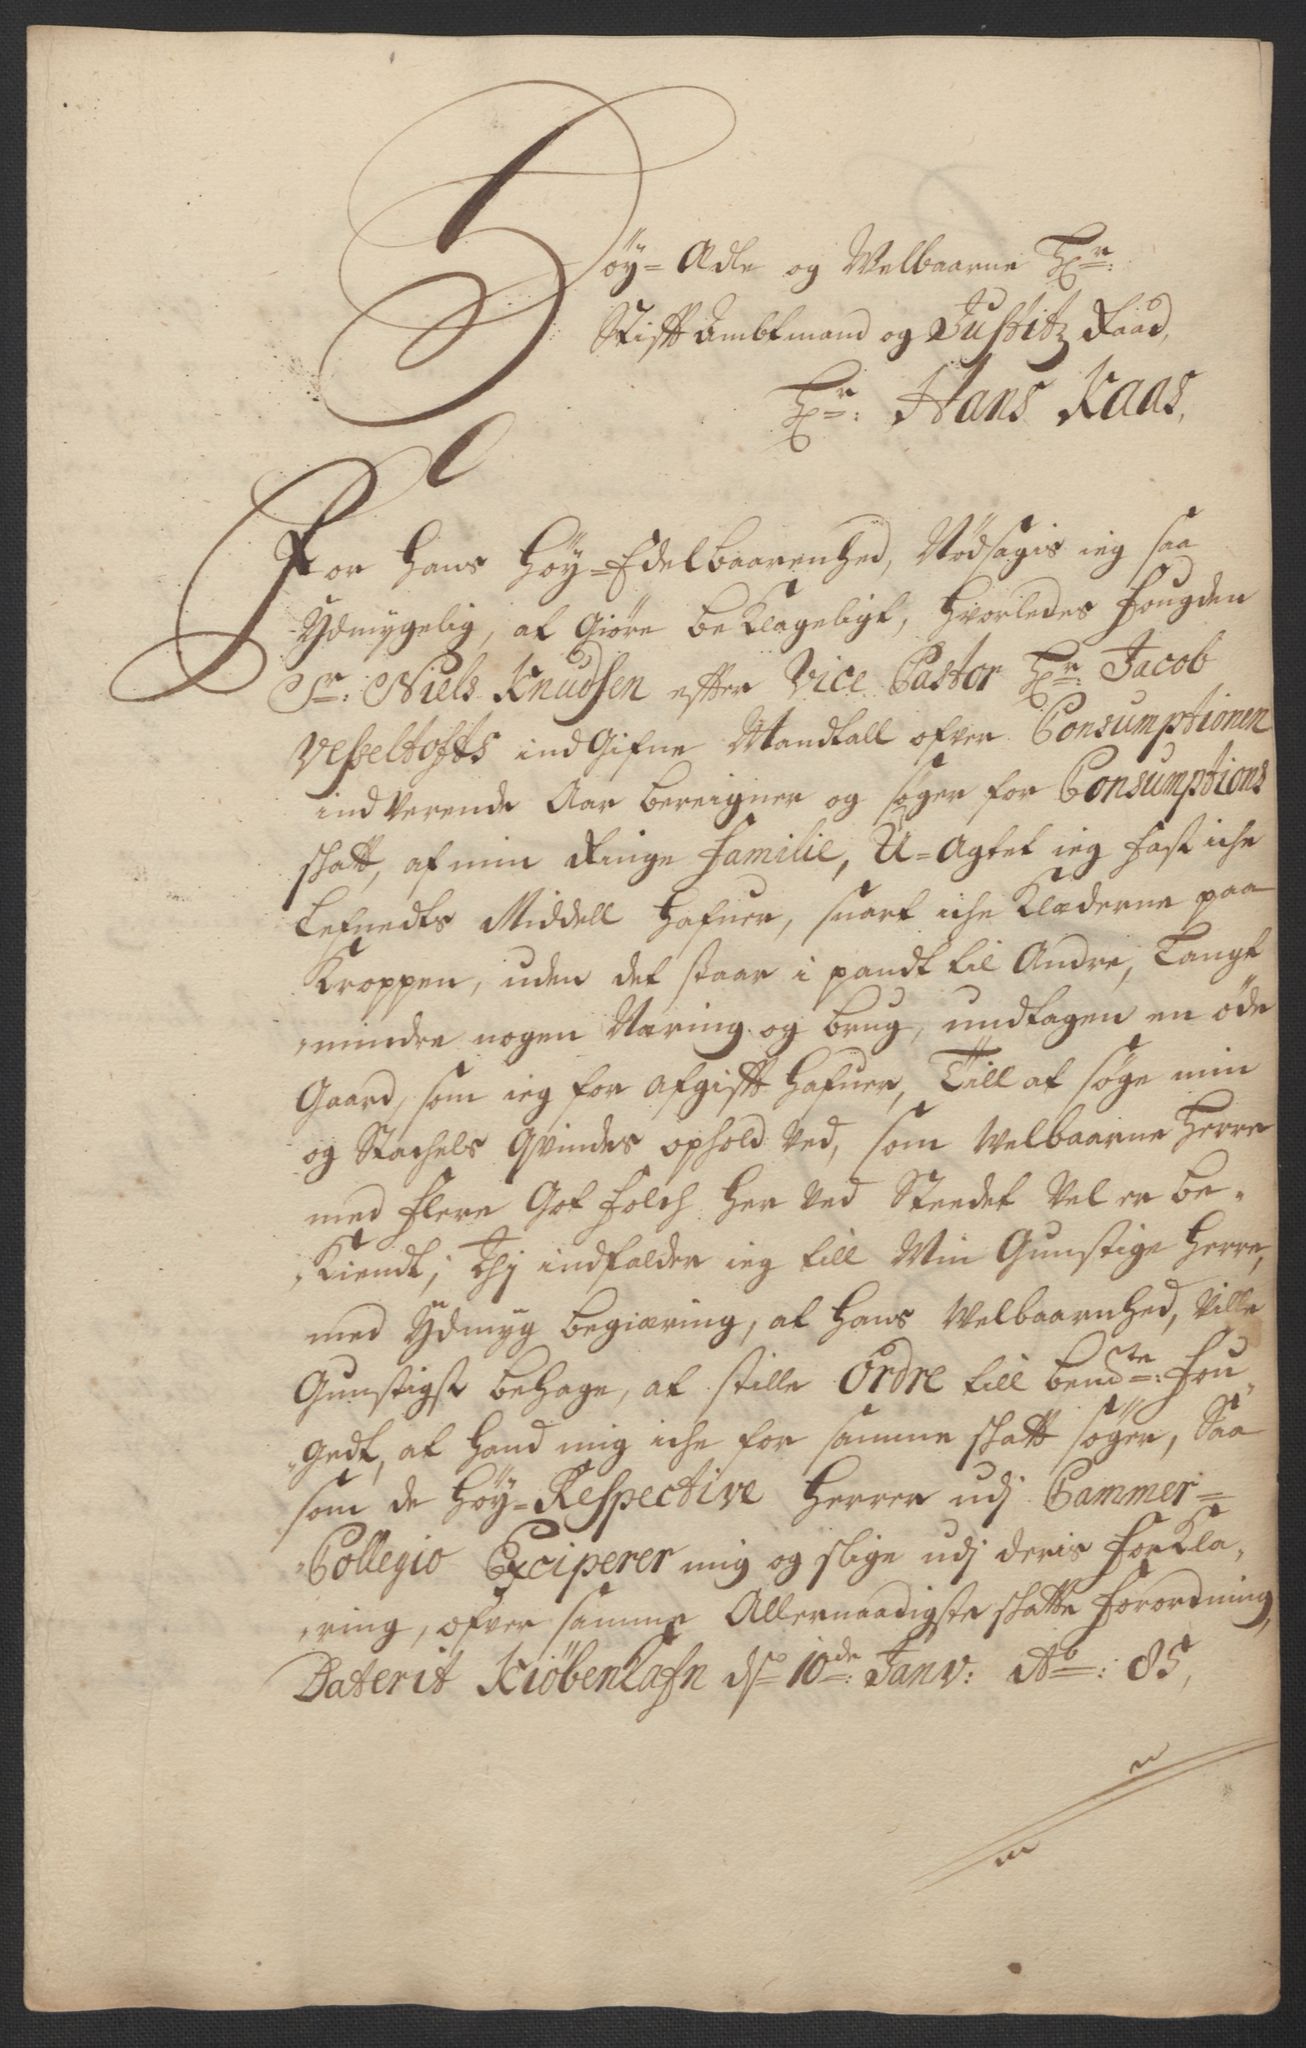 Höy-Ædle og Welbaarne Hr:
Stiftambtmand og Justitz Raad,
Hr: Hans Kaas,
For Hans Höy-Edelbaarenhed, Nödsagis ieg saa
Ydmygelig, at Giöre beklageligt, hvorledes fougden
Sr: Niels Knudsen efter Vice Pastor Hr: Jacob
Vesseltofts indgifne Mandtall ofver Consumptionen
indverende Aar bereigner og søger for Consumptions
skatt, af min Ringe familie, U-Agtet ieg fast iche
Lefnedts Middell hafuer, snart iche Klæderne paa
Kroppen, uden det staar i pandt til Andre, Langt
mindre nogen Næring og brug, undtagen en öde
Gaard, som ieg for afgift hafuer, Till at söge min
og Stachels Qvindes ophold ved, som Welbaarne Herre
med flere Got folch her ved Steedet vel er be-
Kiendt; Thj indfalder ieg till Min Gunstige Herre,
med Ydmyg begiæring, at Hans Welbaarnhed, ville
Gunstigst behage, at stille Ordre till bemte: fou-
gedt, at hand mig iche for samme skatt söger, Saa
som de Höy-Respective Herrer udj Cammer-
Collegio Exciperer mig og slige udj deris forkla-
ring, ofver samme Allernaadigste skatte forordning,
Daterit Kiöbenhafn ds 10de: Janv: Ao: 85,